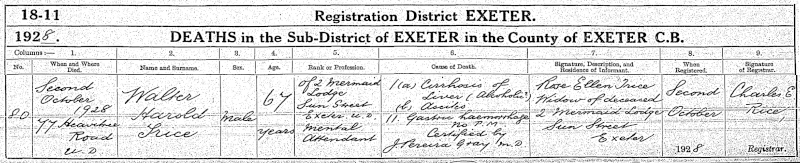 18-11
Registration District EXETER.
1928.
DEATHS in the Sub-District of EXETER in the County of EXETER C.B.
Columns:— 1. 2. 3. 4. 5. 6. 7. 8. 9.
No.
When and Where Died.
Name and Surname.
Sex.
Age.
Rank or Profession.
Cause of Death.
Signature, Description, and Residence of Informant.
When Registered.
Signature of Registrar.
80
Second
October
1928
77 Heavitree
Road
U.D
Walter
Harold
Trice
Male
67
years
Of 2 Mermaid
Lodge
Sun Street
Exeter U.D.
Mental
Attendant
1(a) Cirrhosis of
Liver (Alcoholic)
(b) Ascites
11. Gastric haemorrhage
No P.M.
Certified by
J Pereira Gray M.D.
Rose Ellen Trice
Widow of deceased
2 Mermaid Lodge
Sun Street
Exeter
Second
October
1928
Charles E
Rice
Registrar.